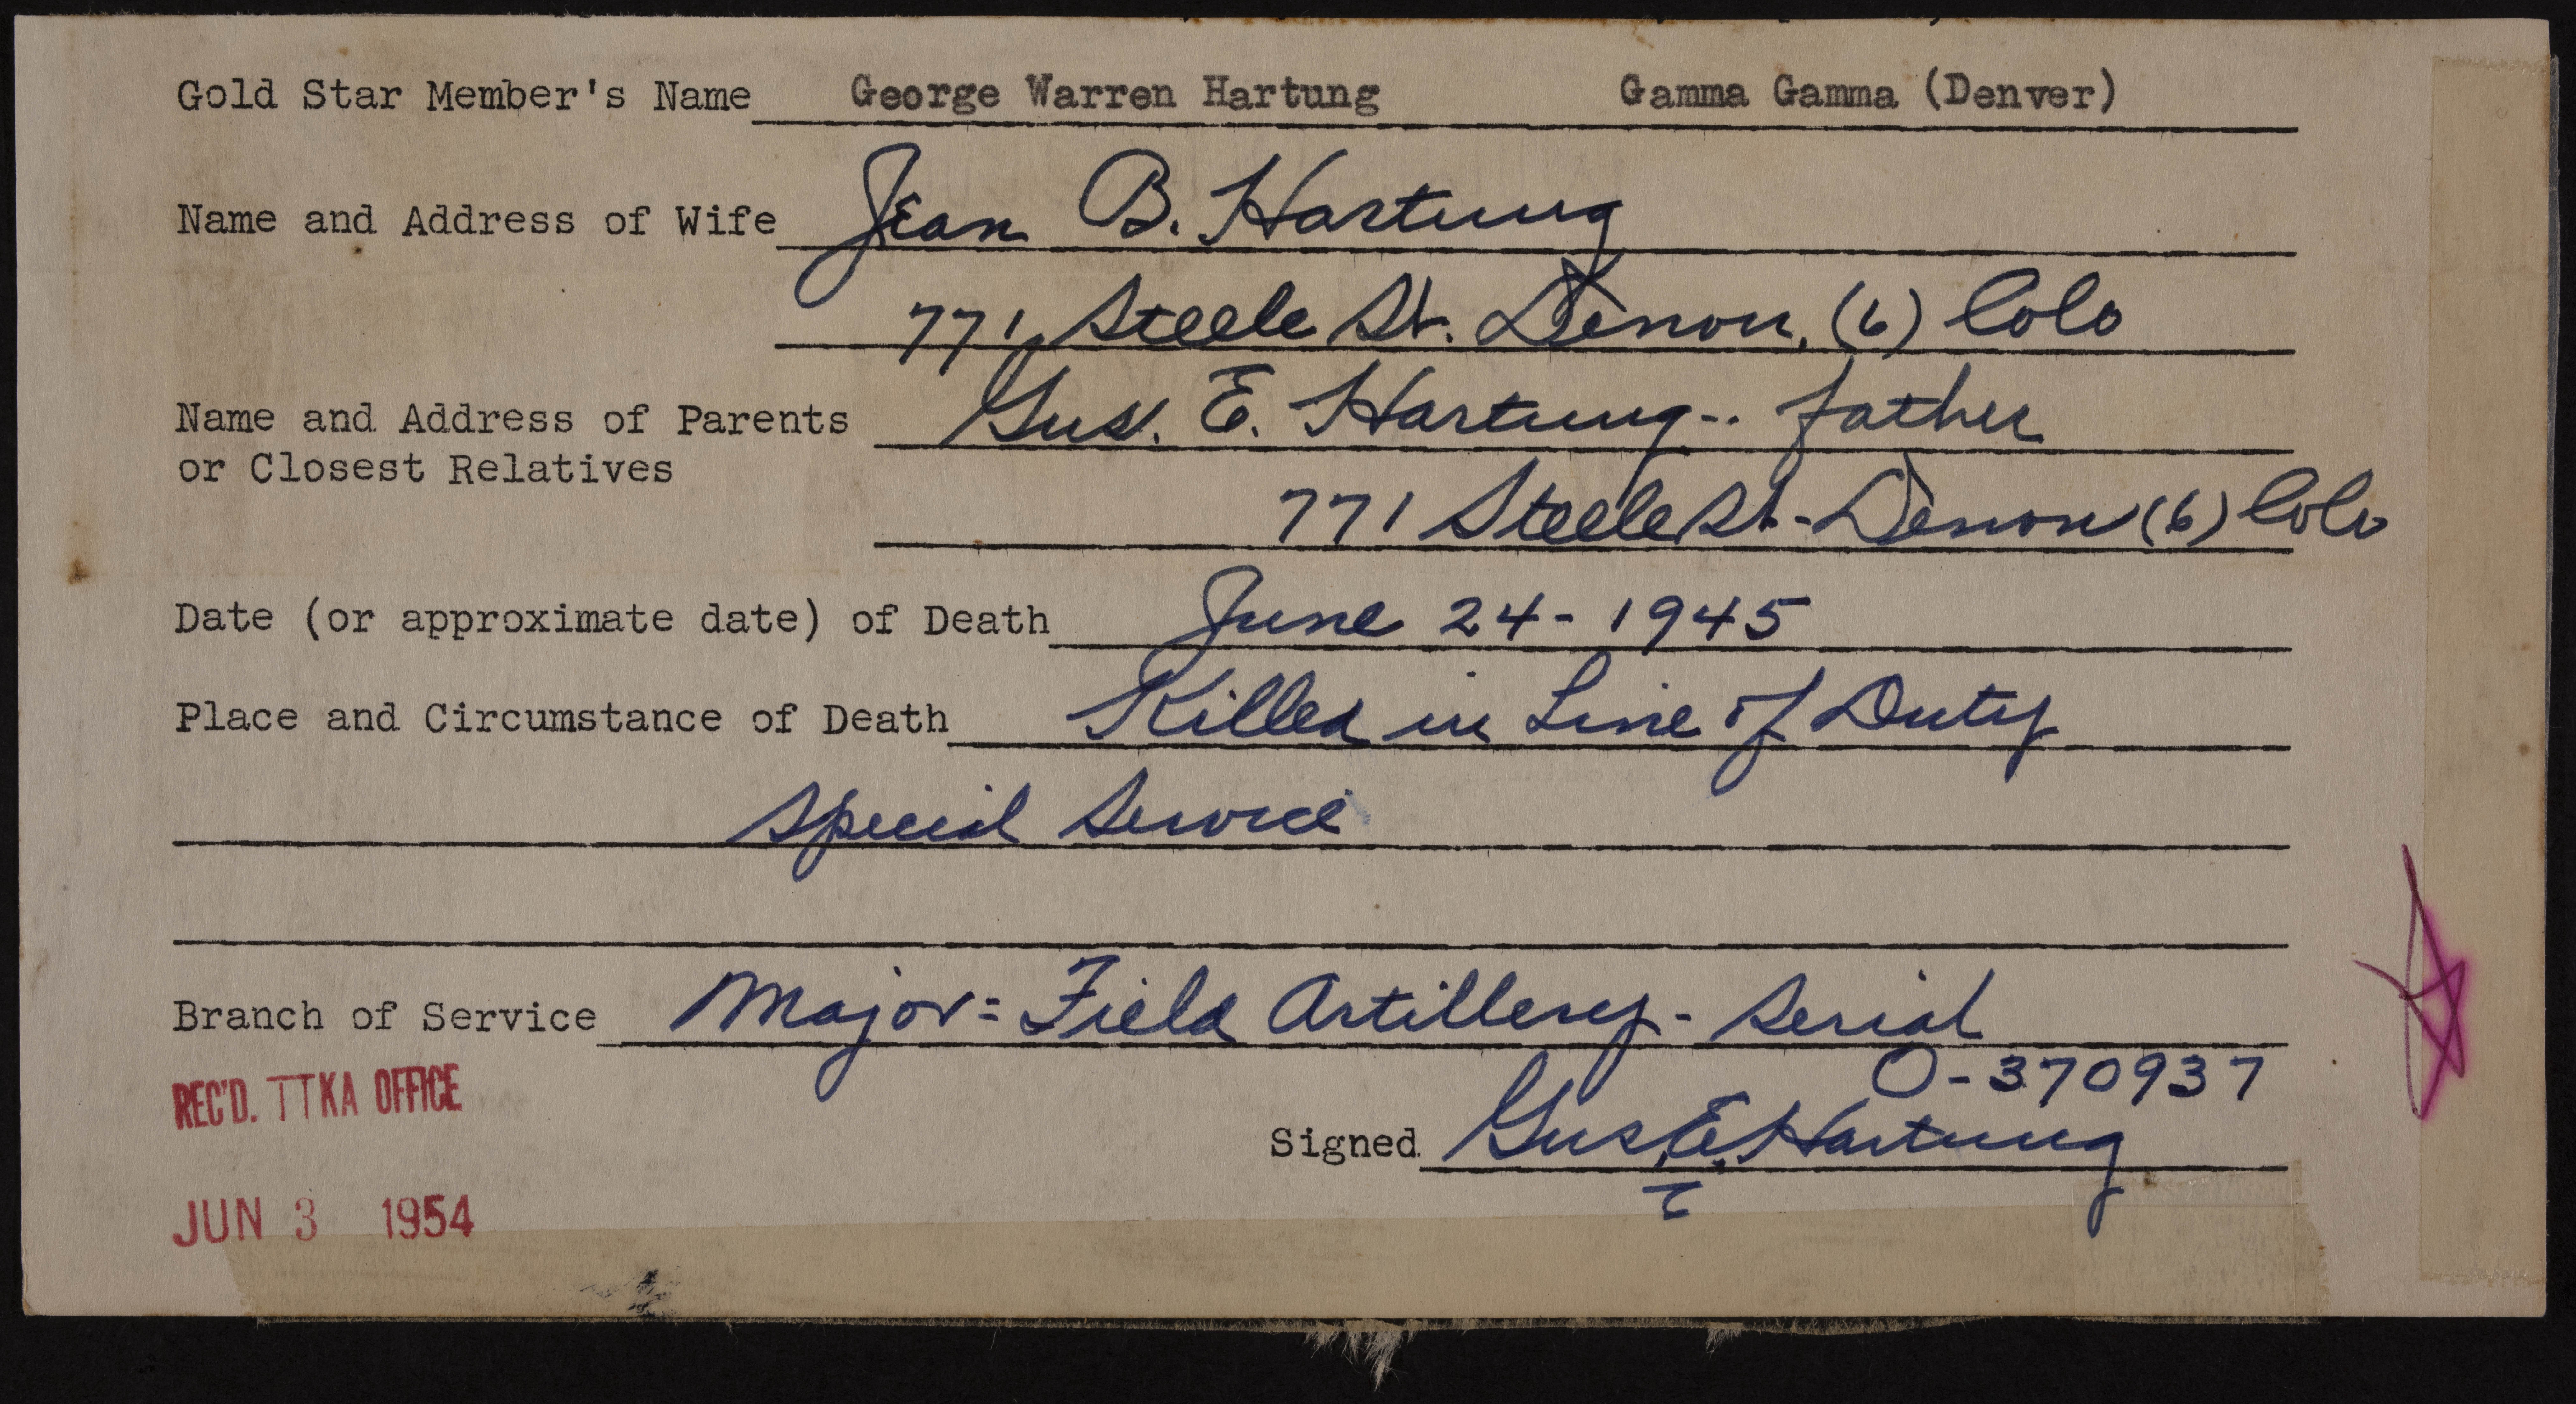 Gold Star Member's Name George Warren Hartung Gamma Gamma (Denver)
Name and Address of Wife Jean B. Hartung
771 Steele St. Denver, (6) Colo
Name and Address of Parents Gus. E. Hartung-. father
or Closest Relatives
771 Steele St - Denver (6) Colo
Date (or approximate date) of Death June 24 - 1945
Place and Circumstance of Death Killed in Line of Duty
Special Service
Branch of Service Major = Field Artillery - Serial
O-370937
REC'D. TTKA OFFICE
Signed Gus. E. Hartung
JUN 3 1954